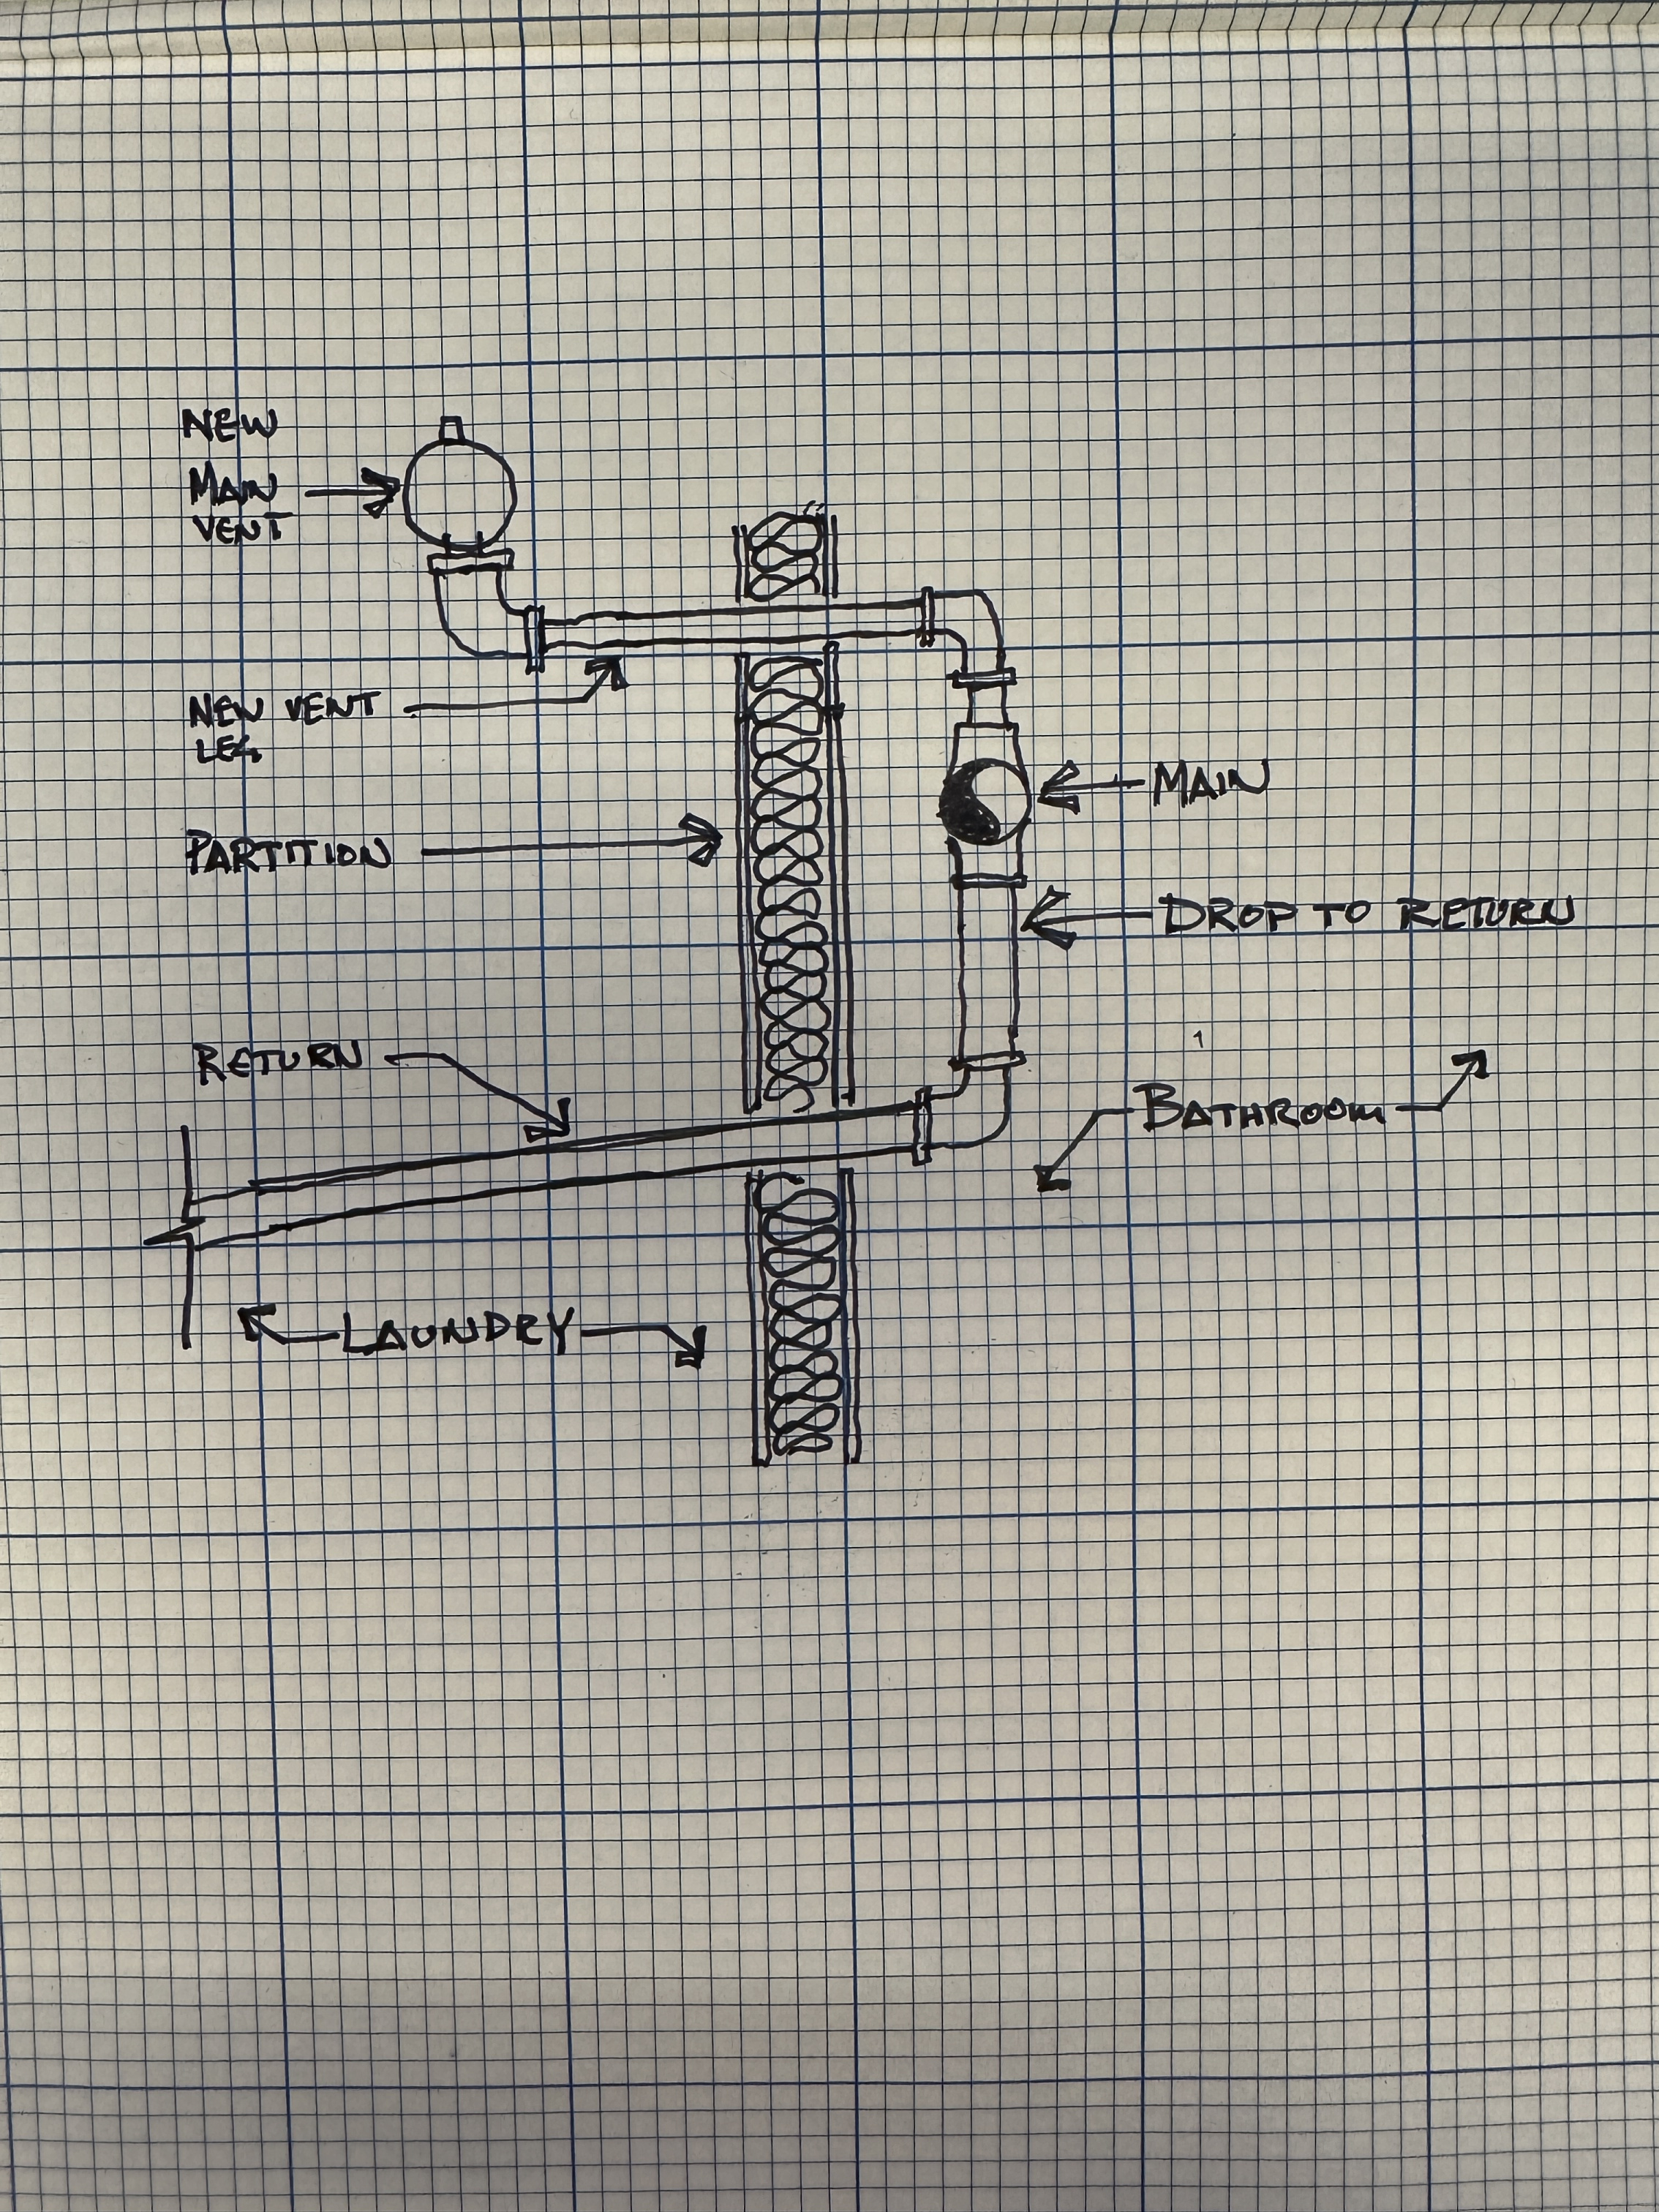 NEW
MAIN
VENT
NEW VENT
LEG
MAIN
PARTITION
DROP TO RETURN
RETURN
BATHROOM
LAUNDRY